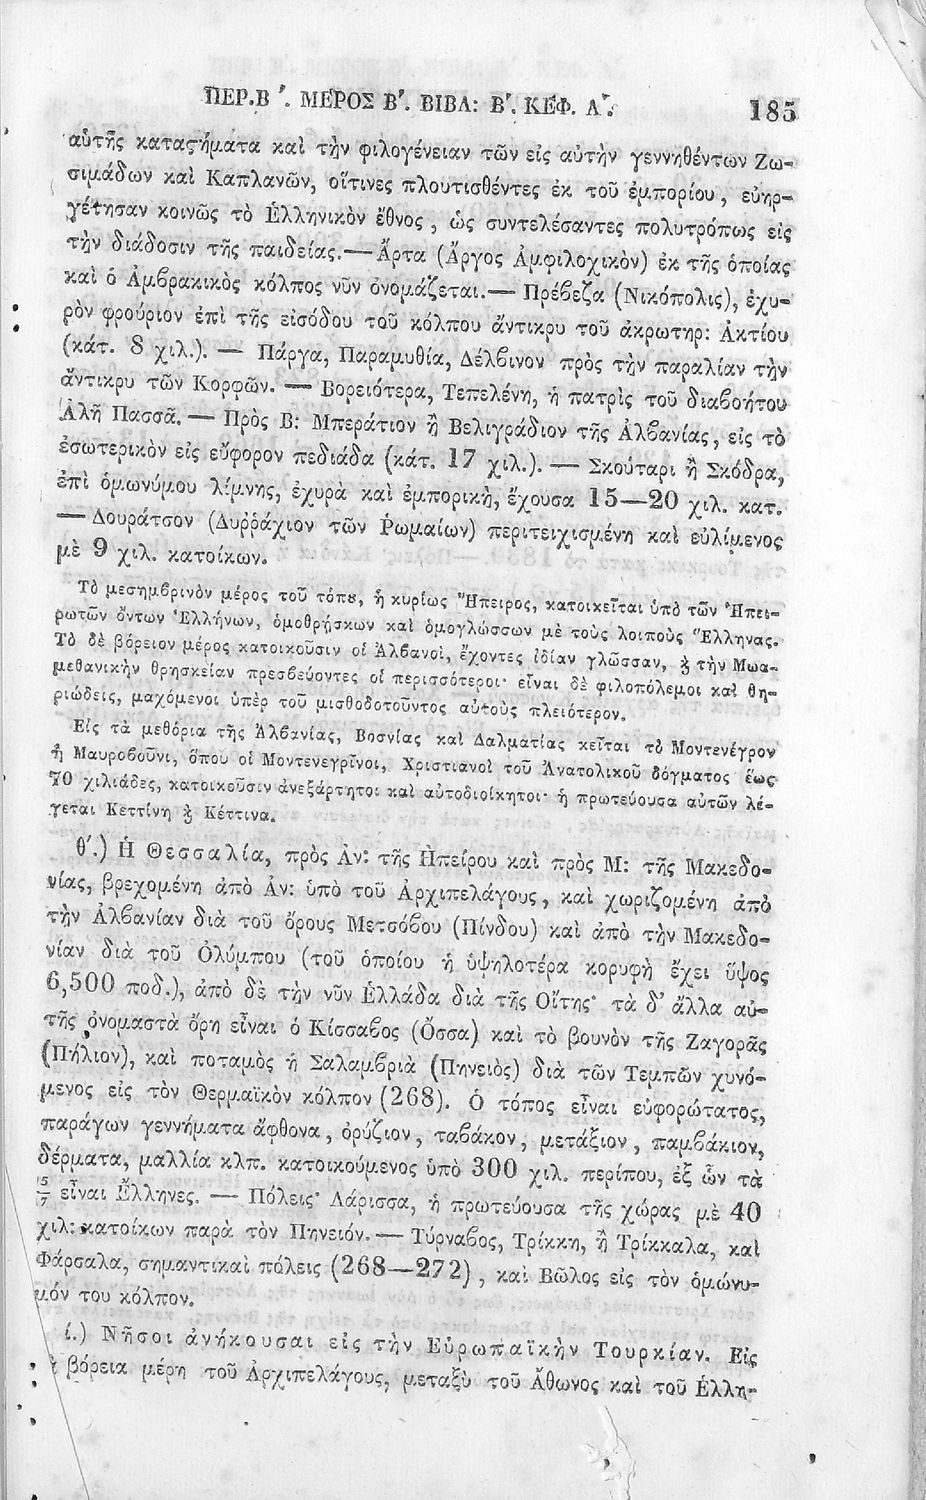 ΠΕΡ.Β΄. ΜΕΡΟΣ Β΄. ΒΙΒΛ: Β΄. ΚΕΦ. Α΄. 185
αὐτῆς καταϛήματα καὶ τὴν φιλογένειαν τῶν εἰς αὐτὴν γεννηθέντων Ζω-
σιμάδων καὶ Καπλανῶν, οἵτινες πλουτισθέντες ἐκ τοῦ ἐμπορίου, εὐηρ-
γέτησαν κοινῶς τὸ Ἑλληνικὸν ἔθνος, ὡς συντελέσαντες πολυτρόπως εἰς
τὴν διάδοσιν τῆς παιδείας.— Ἄρτα (Ἄργος Ἀμφιλοχικὸν) ἐκ τῆς ὁποίας
καὶ ὁ Ἀμβρακικὸς κόλπος νῦν ὀνομάζεται.— Πρέβεζα (Νικόπολις), ἐχυ-
ρὸν φρούριον ἐπὶ τῆς εἰσόδου τοῦ κόλπου ἄντικρυ τοῦ ἀκρωτηρ: Ἀκτίου
(κάτ. 8 χιλ.). — Πάργα, Παραμυθία, Δέλβινον πρὸς τὴν παραλίαν τὴν
ἄντικρυ τῶν Κορφῶν. — Βορειότερα, Τεπελένη, ἡ πατρὶς τοῦ διαβοήτου
Ἀλῆ Πασσᾶ. — Πρὸς Β: Μπεράτιον ἢ Βελιγράδιον τῆς Ἀλβανίας, εἰς τὸ
ἐσωτερικὸν εἰς εὔφορον πεδιάδα (κάτ. 17 χιλ.). — Σκούταρι ἢ Σκόδρα,
ἐπὶ ὁμωνύμου λίμνης, ἐχυρὰ καὶ ἐμπορικὴ, ἔχουσα 15—20 χιλ. κατ.
— Δουράτσον (Δυῤῥάχιον τῶν Ῥωμαίων) περιτειχισμένη καὶ εὐλίμενος
μὲ 9 χιλ. κατοίκων.
Τὸ μεσημβρινὸν μέρος τοῦ τόπȣ, ἡ κυρίως Ἤπειρος, κατοικεῖται ὑπὸ τῶν Ἠπει-
ρωτῶν ὄντων Ἑλλήνων, ὁμοθρήσκων καὶ ὁμογλώσσων μὲ τοὺς λοιποὺς Ἕλληνας.
Τὸ δὲ βόρειον μέρος κατοικοῦσιν οἱ Ἀλβανοὶ, ἔχοντες ἰδίαν γλῶσσαν, ϗ τὴν Μωα-
μεθανικὴν θρησκείαν πρεσβεύοντες οἱ περισσότεροι· εἶναι δὲ φιλοπόλεμοι καὶ θη-
ριώδεις, μαχόμενοι ὑπὲρ τοῦ μισθοδοτοῦντος αὐτοὺς πλειότερον.
Εἰς τὰ μεθόρια τῆς Ἀλβανίας, Βοσνίας καὶ Δαλματίας κεῖται τὸ Μοντενέγρον
ἢ Μαυροβοῦνι, ὅπου οἱ Μοντενεγρῖνοι, Χριστιανοὶ τοῦ Ἀνατολικοῦ δόγματος ἕως
70 χιλιάδες, κατοικοῦσιν ἀνεξάρτητοι καὶ αὐτοδιοίκητοι· ἡ πρωτεύουσα αὐτῶν λέ-
γεται Κεττίνη ϗ Κέττινα.
θ΄.) Ἡ Θεσσαλία, πρὸς Ἀν: τῆς Ἠπείρου καὶ πρὸς Μ: τῆς Μακεδο-
νίας, βρεχομένη ἀπὸ Ἀν: ὑπὸ τοῦ Ἀρχιπελάγους, καὶ χωριζομένη ἀπὸ
τὴν Ἀλβανίαν διὰ τοῦ ὄρους Μετσόβου (Πίνδου) καὶ ἀπὸ τὴν Μακεδο-
νίαν διὰ τοῦ Ὀλύμπου (τοῦ ὁποίου ἡ ὑψηλοτέρα κορυφὴ ἔχει ὕψος
6,500 ποδ.), ἀπὸ δὲ τὴν νῦν Ἑλλάδα διὰ τῆς Οἴτης· τὰ δ’ ἄλλα αὐ-
τῆς ὀνομαστὰ ὄρη εἶναι ὁ Κίσσαβος (Ὄσσα) καὶ τὸ βουνὸν τῆς Ζαγορᾶς
(Πήλιον), καὶ ποταμὸς ἡ Σαλαμβριὰ (Πηνειὸς) διὰ τῶν Τεμπῶν χυνό-
μενος εἰς τὸν Θερμαϊκὸν κόλπον (268). Ὁ τόπος εἶναι εὐφορώτατος,
παράγων γεννήματα ἄφθονα, ὀρύζιον, ταβάκον, μετάξιον, παμβάκιον,
δέρματα, μαλλία κλπ. κατοικούμενος ὑπὸ 300 χιλ. περίπου, ἐξ ὧν τὰ
5/7 εἶναι Ἕλληνες. — Πόλεις· Λάρισσα, ἡ πρωτεύουσα τῆς χώρας μὲ 40
χιλ: κατοίκων παρὰ τὸν Πηνειόν. — Τύρναβος, Τρίκκη, ἢ Τρίκκαλα, καὶ
Φάρσαλα, σημαντικαὶ πόλεις (268—272), καὶ Βῶλος εἰς τὸν ὁμώνυ-
μόν του κόλπον.
ί.) Νῆσοι ἀνήκουσαι εἰς τὴν Εὐρωπαϊκὴν Τουρκίαν. Εἰς
βόρεια μέρη τοῦ Ἀρχιπελάγους, μεταξὺ τοῦ Ἄθωνος καὶ τοῦ Ἑλλη-